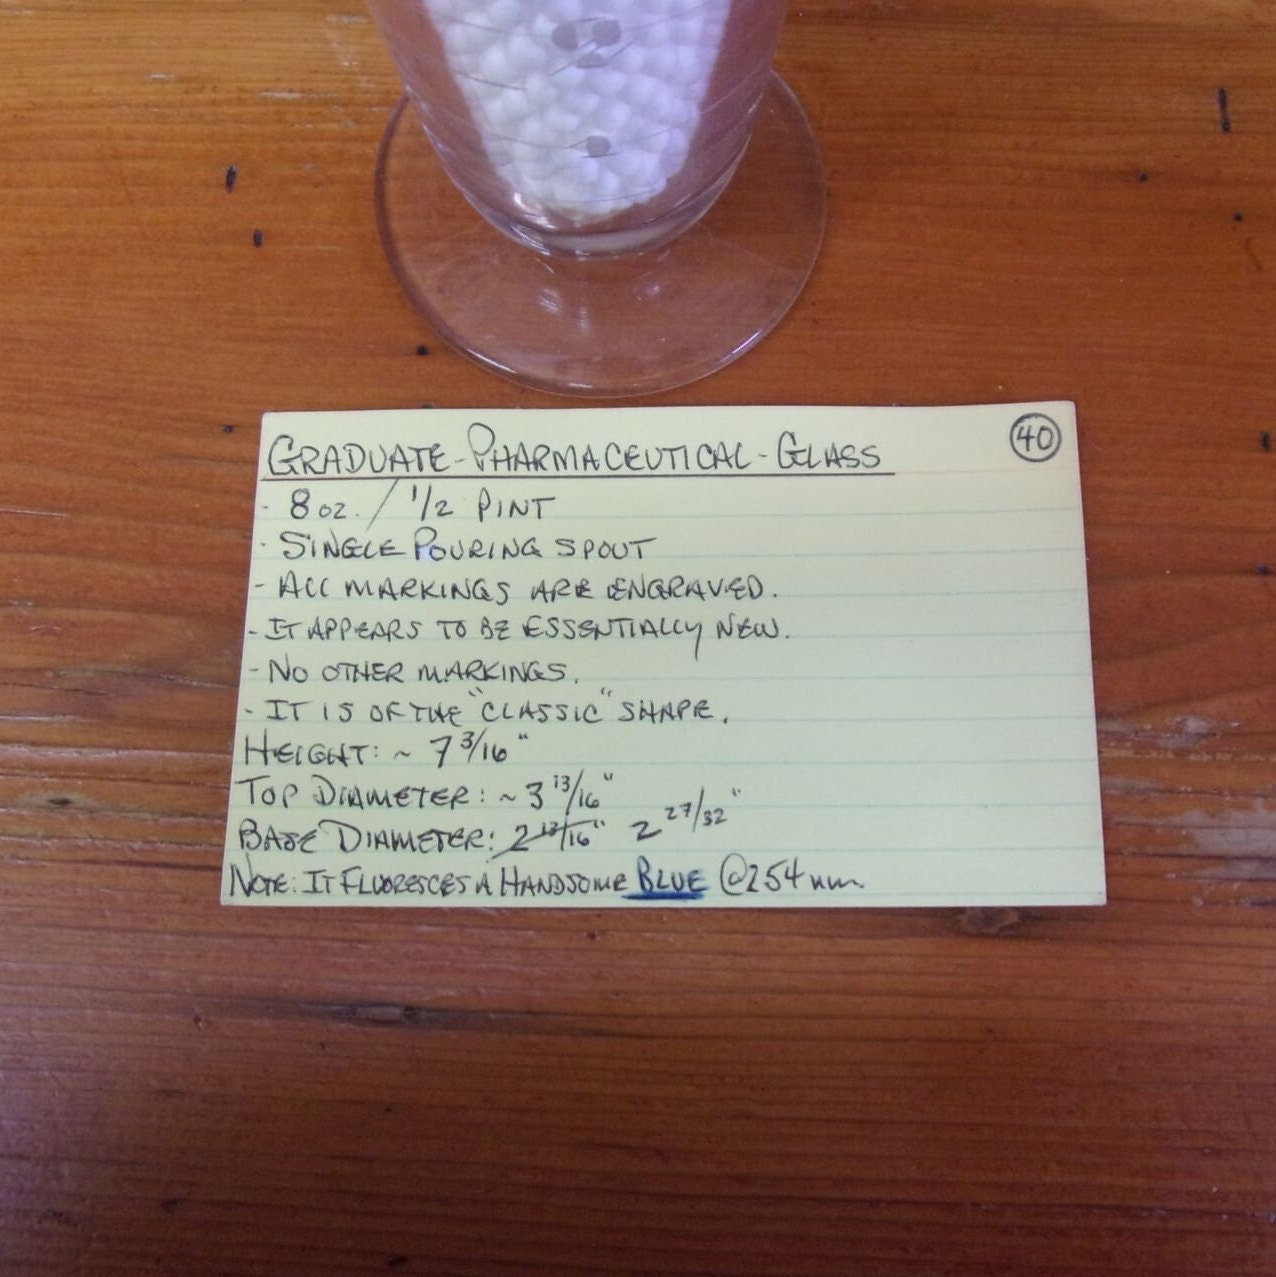 GRADUATE-PHARMACEUTICAL-GLASS 40
- 8 oz. / 1/2 PINT
- SINGLE POURING SPOUT
- ALL MARKINGS ARE ENGRAVED.
- IT APPEARS TO BE ESSENTIALLY NEW.
- NO OTHER MARKINGS.
- IT IS OF THE "CLASSIC" SHAPE.
HEIGHT: ~ 7 3/16"
TOP DIAMETER: ~ 3 13/16"
BASE DIAMETER: 2 13/16" 2 27/32"
NOTE: IT FLUORESCES A HANDSOME BLUE @254nm.